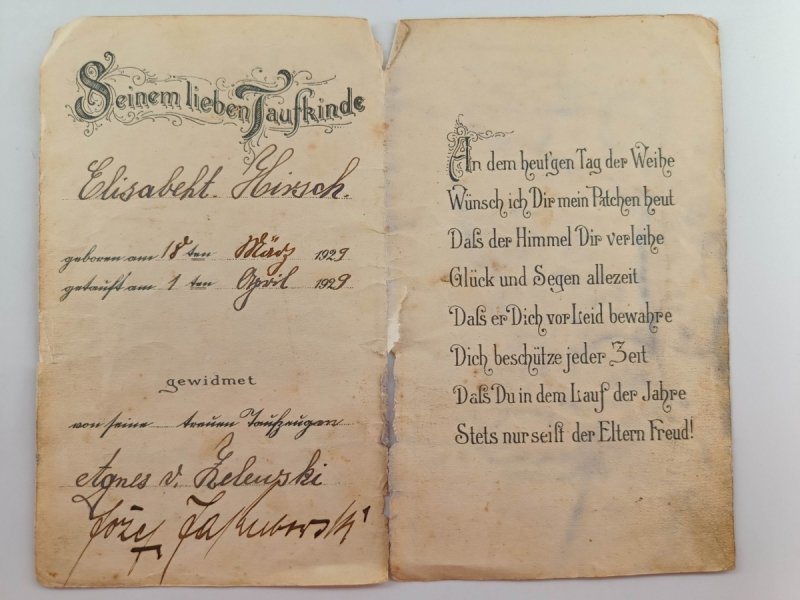 Seinem lieben Taufkinde
Elisabeht. Hirsch.
geboren am 18 ten März 1929
getauft am 1 ten April 1929
gewidmet
von seine treuen Taufzeugen
Agnes v. Zelewski
Józef
An dem heut'gen Tag der Weihe
Wünsch ich Dir mein Patchen heut
Daſs der Himmel Dir verleihe
Glück und Segen allezeit
Daſs er Dich vor Leid bewahre
Dich beschütze jeder Zeit
Daſs Du in dem Lauf der Jahre
Stets nur seiſt der Eltern Freud!